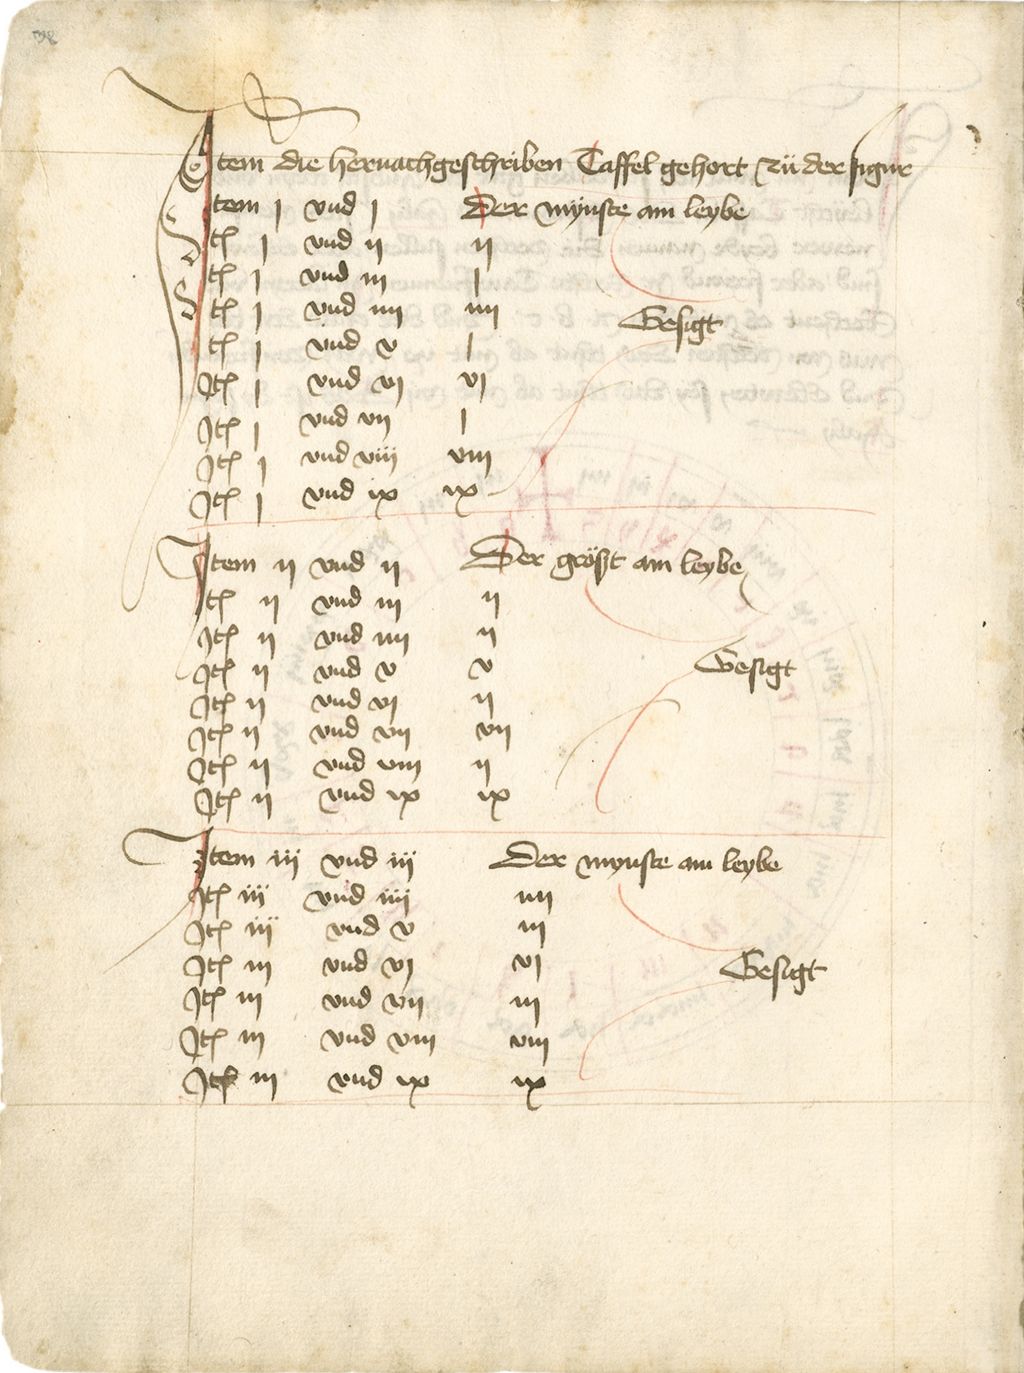 Item die hernachgeschriben Taffel gehort zu der figur
Item j vnd j Der mynste am leybe
Itē j vnd ij ij
Itē j vnd iij j
Itē j vnd iiij iiij
Gesigt
Itē j vnd v j
Itē j vnd vj vj
Itē j vnd vij j
Itē j vnd viij viij
Itē j vnd ix ix
Item ij vnd ij Der gröszt am leybe
Itē ij vnd iij ij
Itē ij vnd iiij ij
Itē ij vnd v v
Gesigt
Itē ij vnd vj ij
Itē ij vnd vij vij
Itē ij vnd viij ij
Itē ij vnd ix ix
Item iij vnd iij Der mynste am leybe
Itē iij vnd iiij iiij
Itē iij vnd v iij
Itē iij vnd vj vj
Gesigt
Itē iij vnd vij iij
Itē iij vnd viij viij
Itē iij vnd ix ix